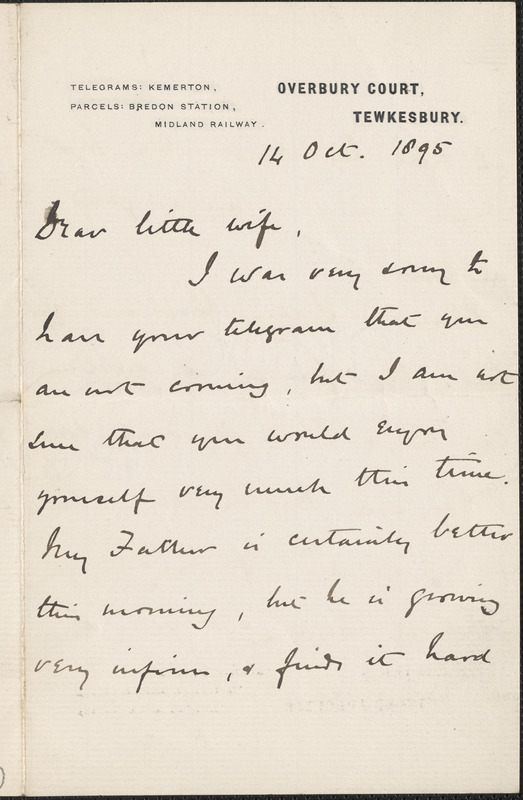 TELEGRAMS: KEMERTON,
PARCELS: BREDON STATION,
MIDLAND RAILWAY.
OVERBURY COURT,
TEWKESBURY.
14 Oct. 1895
Dear little wife,
I was very sorry to
have your telegram that you
are not coming, but I am not
sure that you would enjoy
yourself very much this time.
My Father is certainly better
this morning, but he is growing
very infirm, & finds it hard